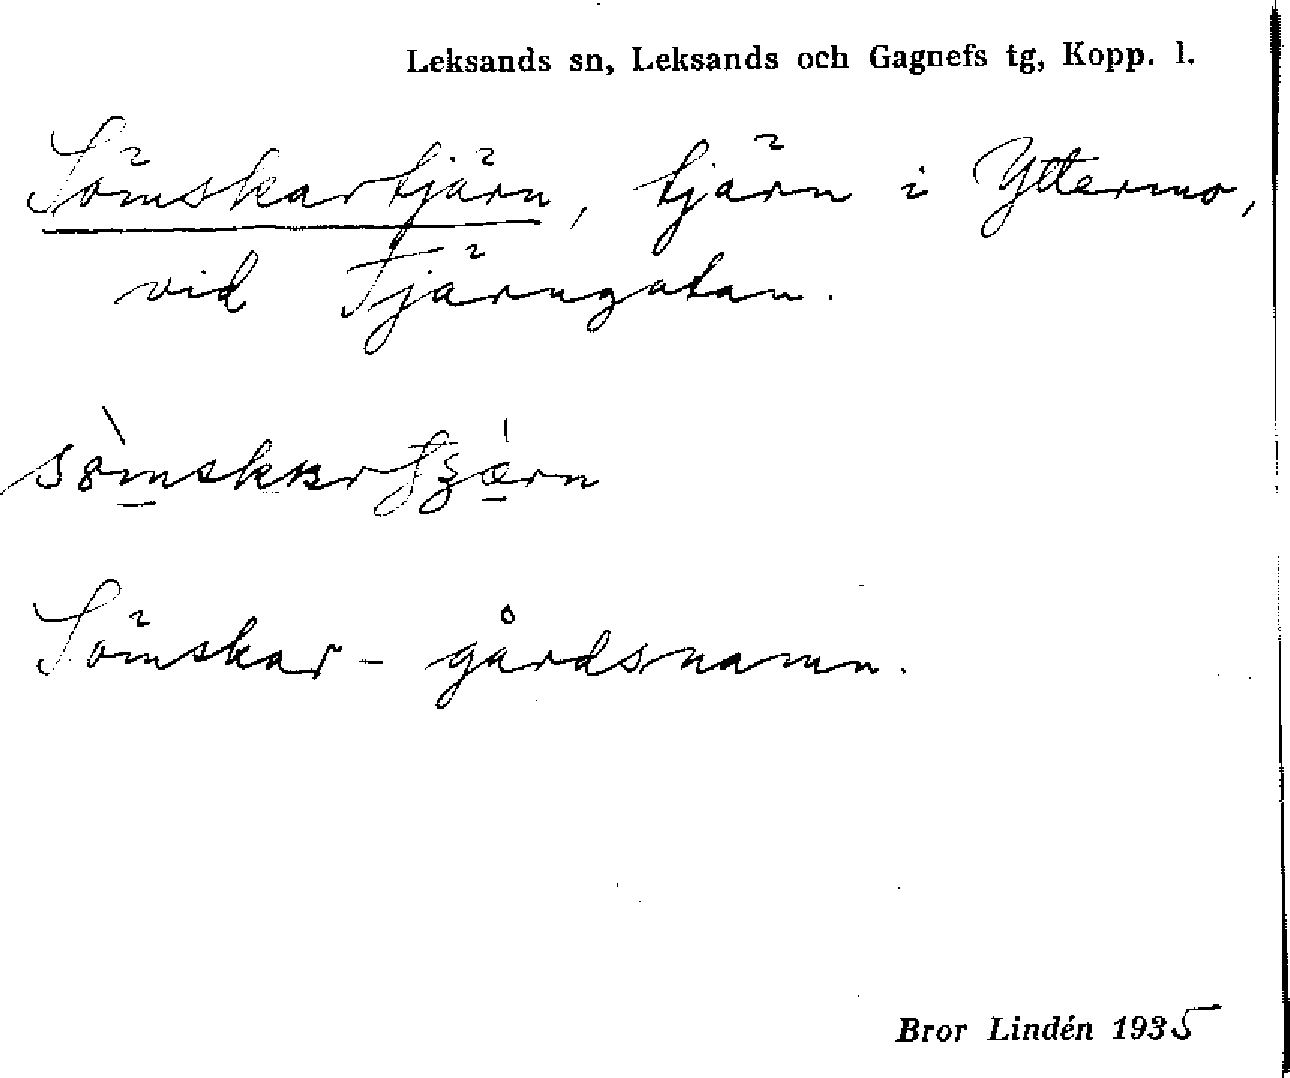 Leksands sn, Leksands och Gagnefs tg, Kopp. l.
Sömskartjärn, tjärn i Yttermo,
vid Tjärngatan.
Sömskar - gårdsnamn.
Bror Lindén 1935